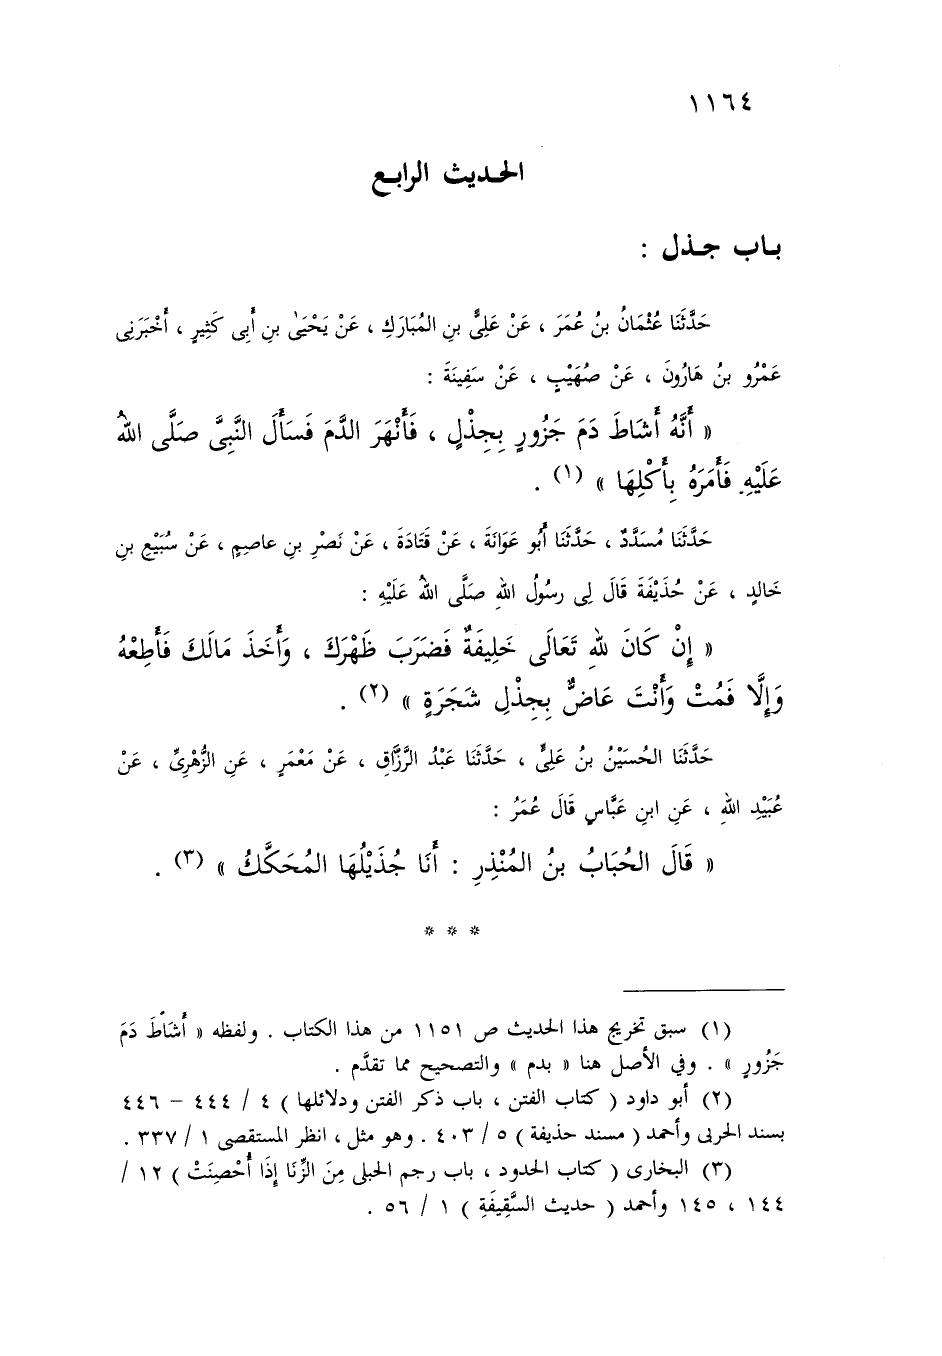 ١١٦٤
الحـديث الرابـع
بـاب جـذل :
حَدَّثَنَا عُثْمَانُ بنُ عُمَرَ ، عَنْ عَلِىٍّ بنِ المُبَارَكِ ، عَنْ يَحْيَىٰ بنِ أَبِى كَثِيرٍ ، أَخْبَرَنِى
عَمْرُو بنُ هَارُونَ ، عَنْ صُهَيْبٍ ، عَنْ سَفِينَةَ :
« أَنَّهُ أَشَاطَ دَمَ جَزُورٍ بِجِذْلٍ ، فَأَنْهَرَ الدَّمَ فَسَأَلَ النَّبِىَّ صَلَّى اللهُ
عَلَيْهِ فَأَمَرَهُ بِأَكْلِهَا » (١) .
حَدَّثَنَا مُسَدَّدٌ ، حَدَّثَنَا أَبُو عَوَانَةَ ، عَنْ قَتَادَةَ ، عَنْ نَصْرِ بنِ عاصِمٍ ، عَنْ سُبَيْعِ بنِ
خَالدٍ ، عَنْ حُذَيْفَةَ قَالَ لِى رسُولُ اللهِ صَلَّى اللهُ عَلَيْهِ :
« إِنْ كَانَ للهِ تَعَالَى خَلِيفَةٌ فَضَرَبَ ظَهْرَكَ ، وَأَخَذَ مَالَكَ فَأَطِعْهُ
وَإِلَّا فَمُتْ وَأَنْتَ عَاضٌّ بِجِذْلِ شَجَرَةٍ » (٢) .
حَدَّثَنَا الحُسَيْنُ بنُ عَلِىٍّ ، حَدَّثَنَا عَبْدُ الرَّزَّاقِ ، عَنْ مَعْمَرٍ ، عَنِ الزُّهْرِىِّ ، عَنْ
عُبَيْدِ اللهِ ، عَنِ ابنِ عَبَّاسٍ قَالَ عُمَرُ :
« قَالَ الحُبَابُ بنُ المُنْذِرِ : أَنَا جُذَيْلُهَا المُحَكَّكُ » (٣) .
* * *
(١) سبق تخريج هذا الحديث ص ١١٥١ من هذا الكتاب . ولفظه « أَشَاطَ دَمَ
جَزُورٍ » . وفي الأصل هنا « بدم » والتصحيح مما تقدَّم .
(٢) أبو داود ( كتاب الفتن ، باب ذكر الفتن ودلائلها ) ٤ / ٤٤٤ – ٤٤٦
بسند الحربى وأحمد ( مسند حذيفة ) ٥ / ٤٠٣ . وهو مثل ، انظر المستقصى ١ / ٣٣٧ .
(٣) البخارى ( كتاب الحدود ، باب رجم الحبلى مِنَ الزِّنَا إِذَا أُحْصِنَتْ ) ١٢ /
١٤٤ ، ١٤٥ وأحمد ( حديث السَّقِيفَةِ ) ١ / ٥٦ .